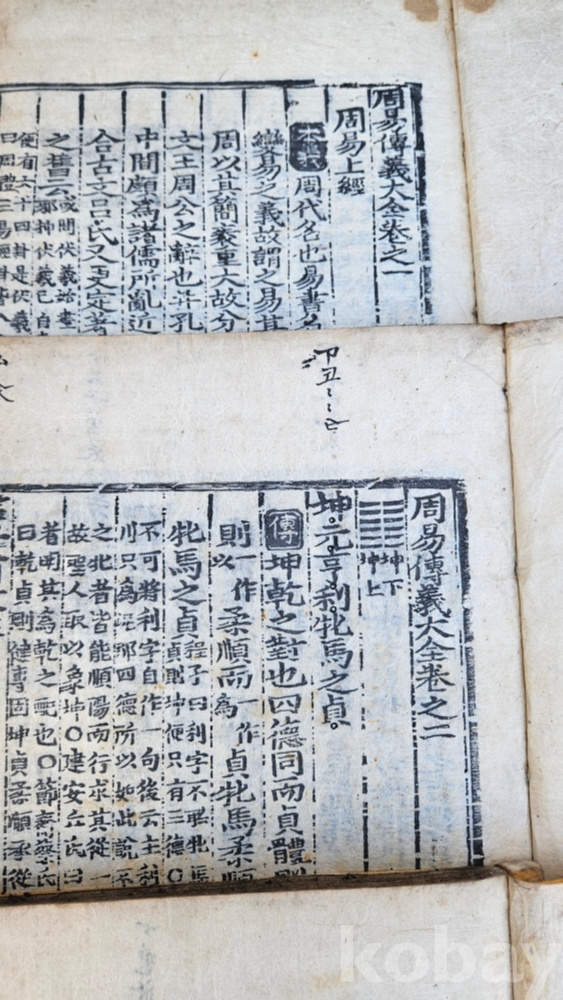 周易傳義大全卷之一
周易上經
本義 周代名也易書名
變易之義故謂之易其
周以其簡袠重大故分
文王周公之辭也并孔
中間頗爲諸儒所亂近
合古文呂氏又更定著
之舊云或問伏羲始畫
便有六十四卦是伏羲
曰周禮三易經卦皆八
周易傳義大全卷之二
坤下
坤上
坤元亨利牝馬之貞
傳 坤乾之對也四德同而貞體則
則一作以柔順而一作爲貞牝馬柔順
牝馬之貞程子曰利字不聯牝馬
貞則坤便只有三德〇
不可將利字自作一句後云主利
川只爲泥那四德所以如此說不
之牝者皆能順陽而行求其從一
故聖人取以象坤〇建安丘氏曰
者明其爲乾之配也〇節齋蔡氏
曰乾貞則健專固坤貞柔順承從
kobay